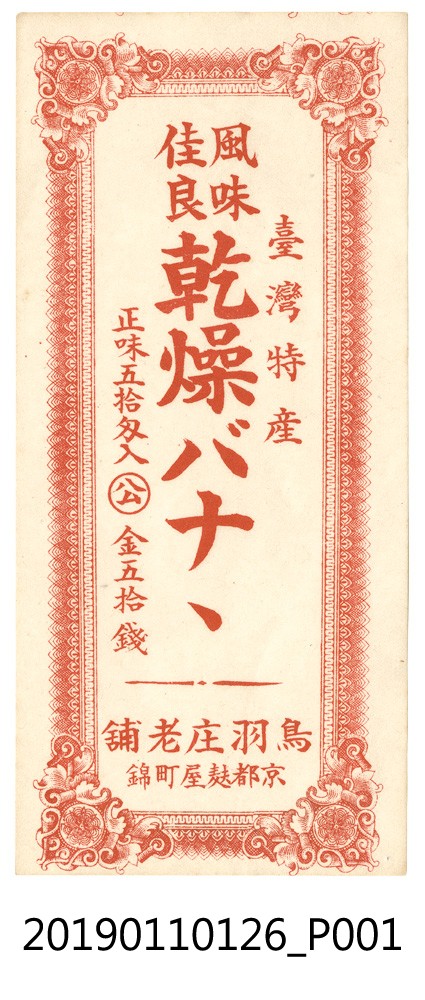 臺灣特産
風味
佳良
乾燥バナヽ
正味五拾匁入 公 金五拾錢
鳥羽庄老舗
京都麸屋町錦
20190110126_P001